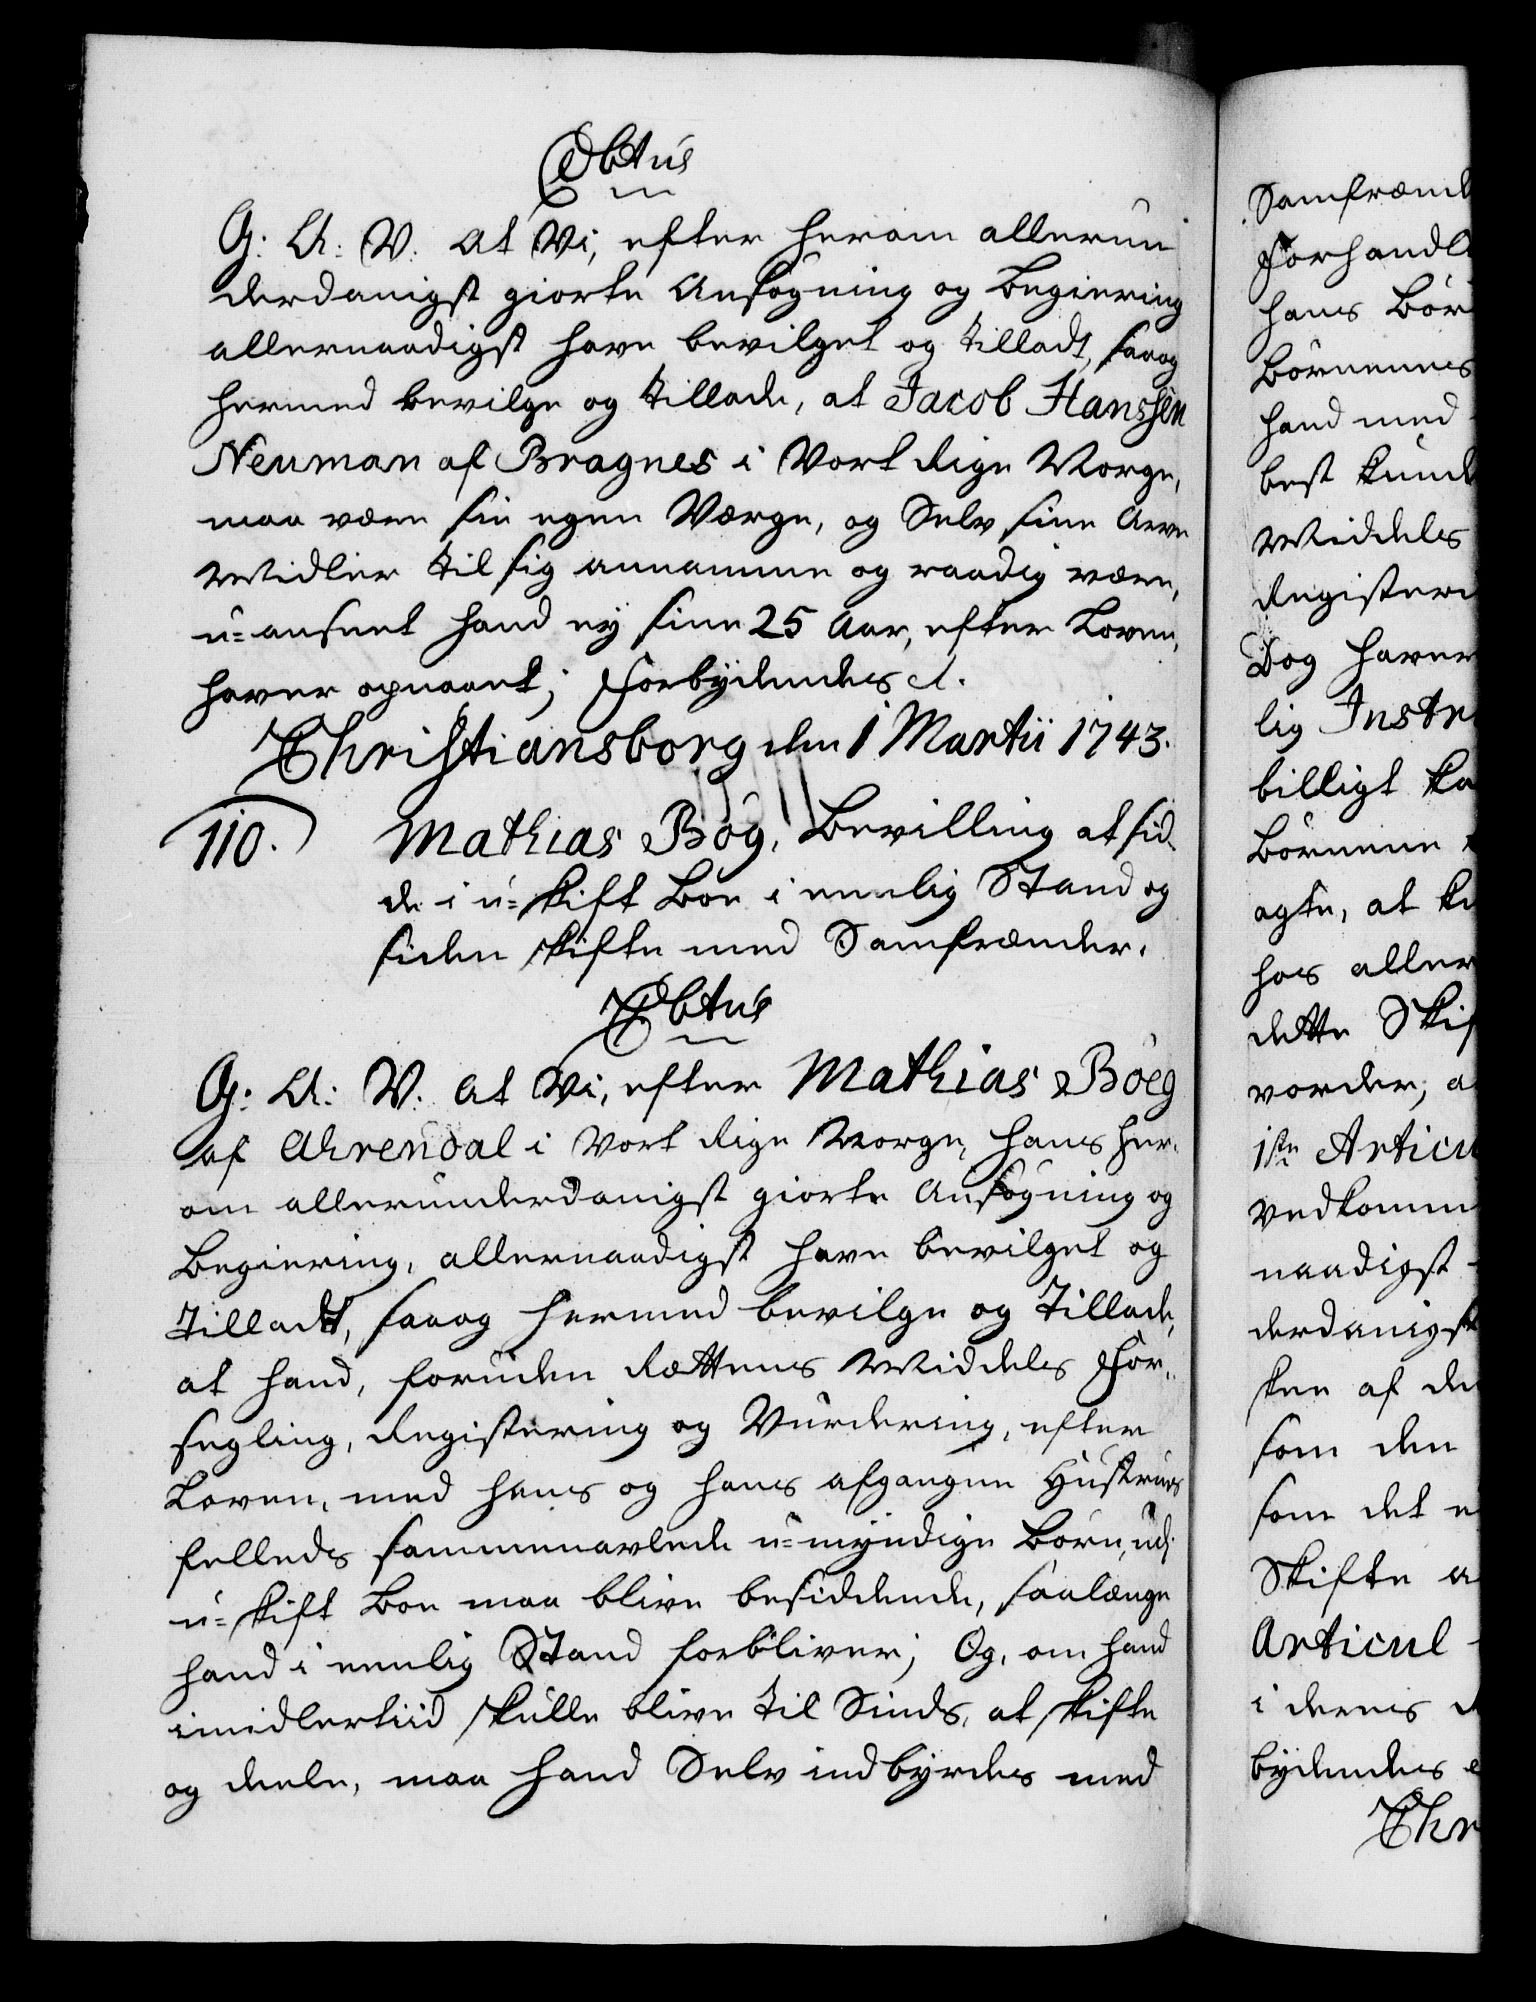 Cbtus
G: A: V. at Vi, efter herom allerun
derdanigst giorte Ansøgning og Begiering
allernaadigst have bevilget og tilladt, saaog
hermed bevilge og tillade, at Jacob Hanssen
Neuman af Bragnes i Vort Rige Norge,
maa være sin egen Værge, og Selv sine Arve
Midler til sig annamme og raadig være,
u-anseet hand ey sine 25 Aar, efter Loven,
haver opnaaet; Forbydendes etc.
Christiansborg den 1 Martii 1743.
110.
Mathias Bög, Bevilling at sid-
de i u-skift Boe i eenlig Stand og
siden skifte med Samfrænder.
Cbtus
G: A: V. at Vi, efter Mathias Böeg
af Ahrendal i Vort Rige Norge, hans her-
om allerunderdanigst giorte Ansøgning og
Begiering, allernaadigst have bevilget og
Tilladt, saaog hermed bevilge og Tillade,
at hand, foruden Rættens Middels For-
segling, Registering og Vurdering, efter
Loven, med hans og hans afgangne Hustrues
felleds sammenavlede u-myndige Børn, udi
u-skift Boe maa blive besiddende, saalænge
hand i eenlig Stand forbliver; Og, om hand
imidlertiid skulle blive til Sinds, at skifte
og deele, maa hand Selv indbyrdes med
Samfrænd
Forhandl
hans Bør
Børnenes
hand med
best kund
Middels
Registeri
Dog haver
lig Instr
billigt ka
Børnene
agte, at
hos aller
dette Skif
vorder, a
1ste Articu
Vedkomm
naadigst
derdanigst
ken af de
som den
som det
Skifte a
Articul
i deres
bydendes
Chr